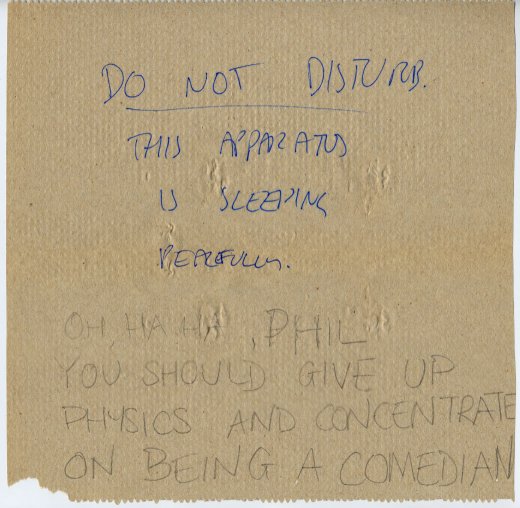 DO NOT DISTURB.
THIS APPARATUS
IS SLEEPING
PEACEFULLY.
OH, HA HA, PHIL
YOU SHOULD GIVE UP
PHYSICS AND CONCENTRATE
ON BEING A COMEDIAN